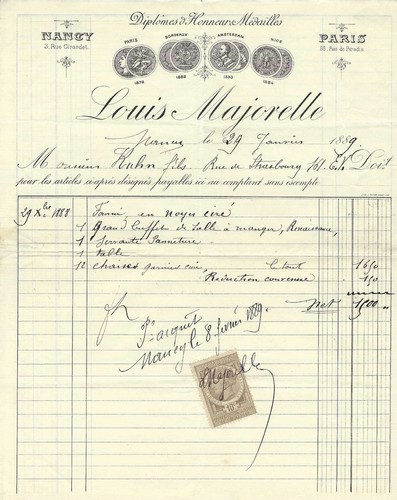 Diplômes d'Honneur & Médailles
NANCY
3, Rue Girardet.
PARIS
BORDEAUX
AMSTERDAM
NICE
PARIS
56, Rue de Paradis
1878
1882
1883
1884
Louis Majorelle
Nancy, le 29 Janvier 1889.
Monsieur Kuhn fils Rue de Strasbourg E.V. Doit
pour les articles ci-après désignés, payables ici au comptant sans escompte
29 Xbre 1888 Fourni en noyer ciré
1 Grand buffet de Salle à manger, Renaissance,
1 Servante Fermeture.
1 table
12 chaises garnies cuir, le tout 1650
Réduction convenue 150
Net 1500 "
Pr acquit
Nancy le 8 février 1889.
10c
LMajorelle